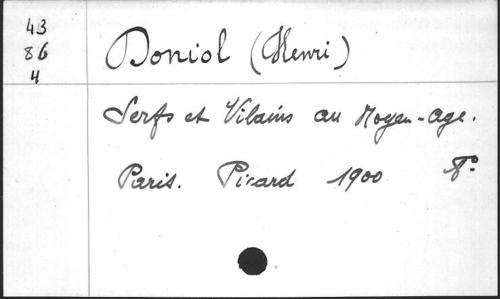 43
86
4
Doniol (Henri)
Serfs et Vilains au Moyen-age.
Paris. Picard 1900